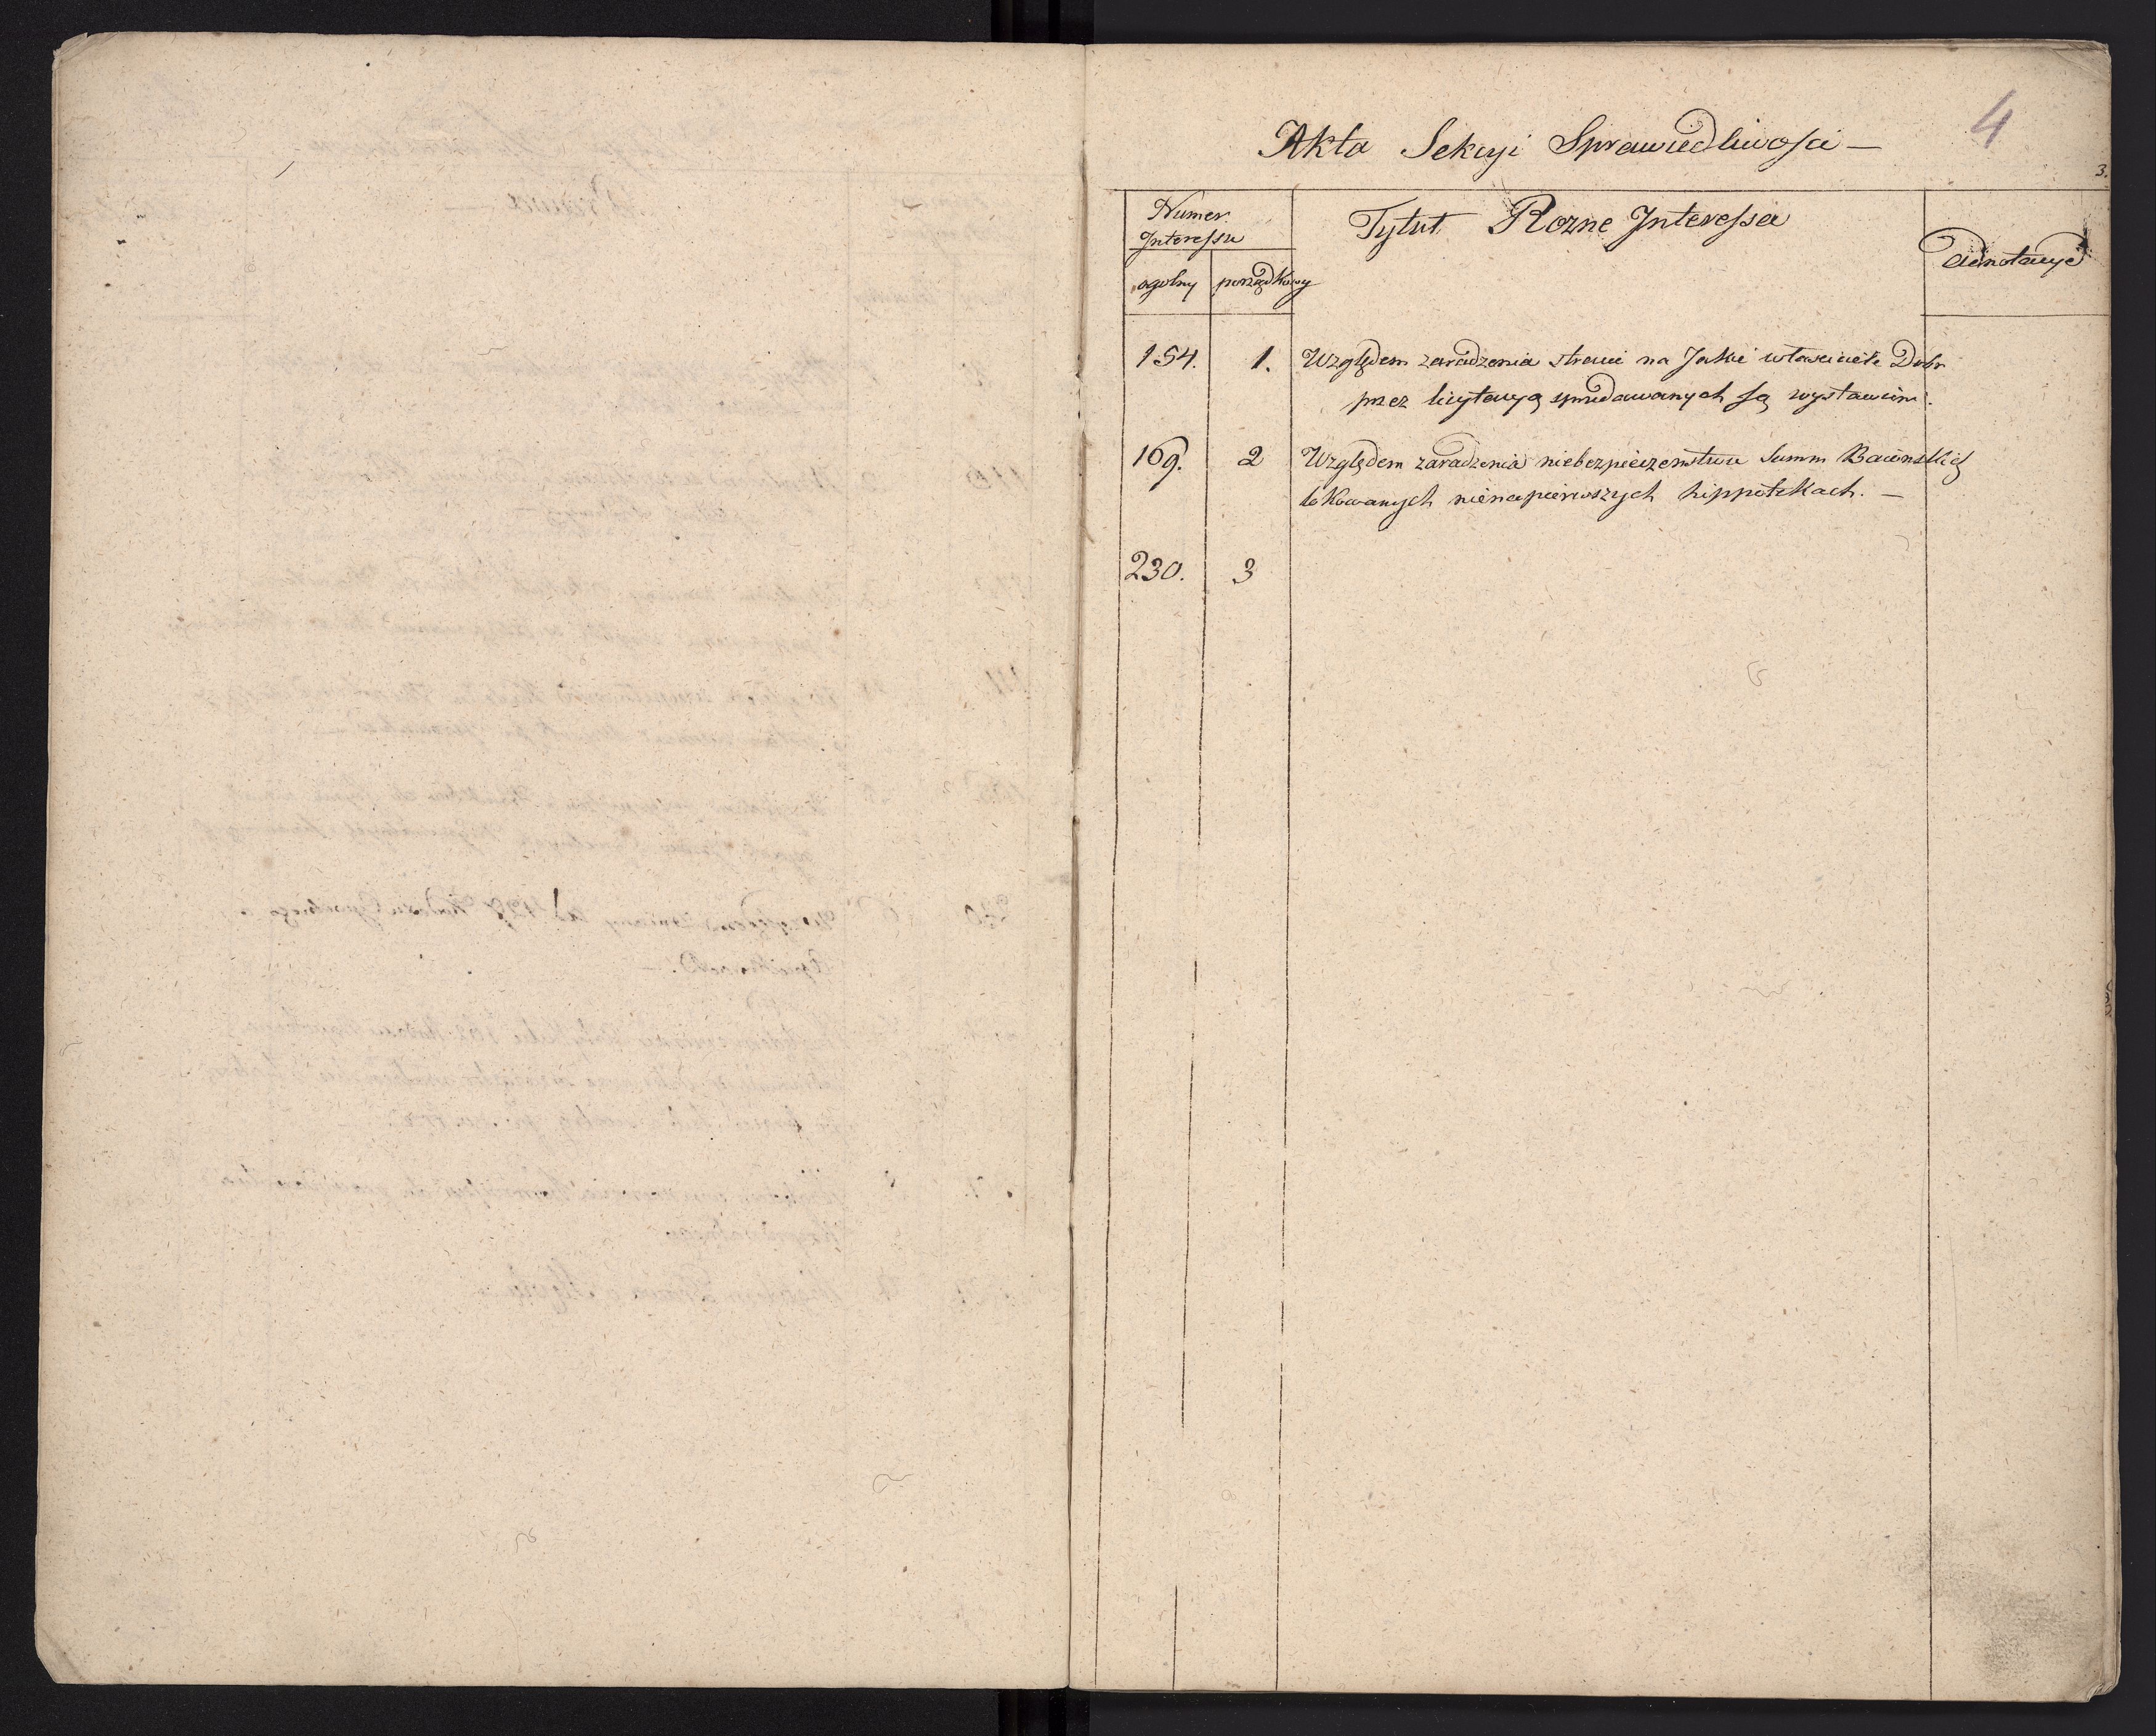 4
Akta Sekcyi Sprawiedliwości —
3.
Numer
Interessu
Tytuł Rozne Interessa
Adnotacye
ogolny porządkowy
154. 1. Względem zaradzenia stracie na Jakie własciciele Dobr
przez licytacyą sprzedawanych są wystawieni.
169. 2 Względem zaradzenia niebezpieczenstwu Summ Baionskich
lokowanych nienapierwszych hippotekach. —
230. 3